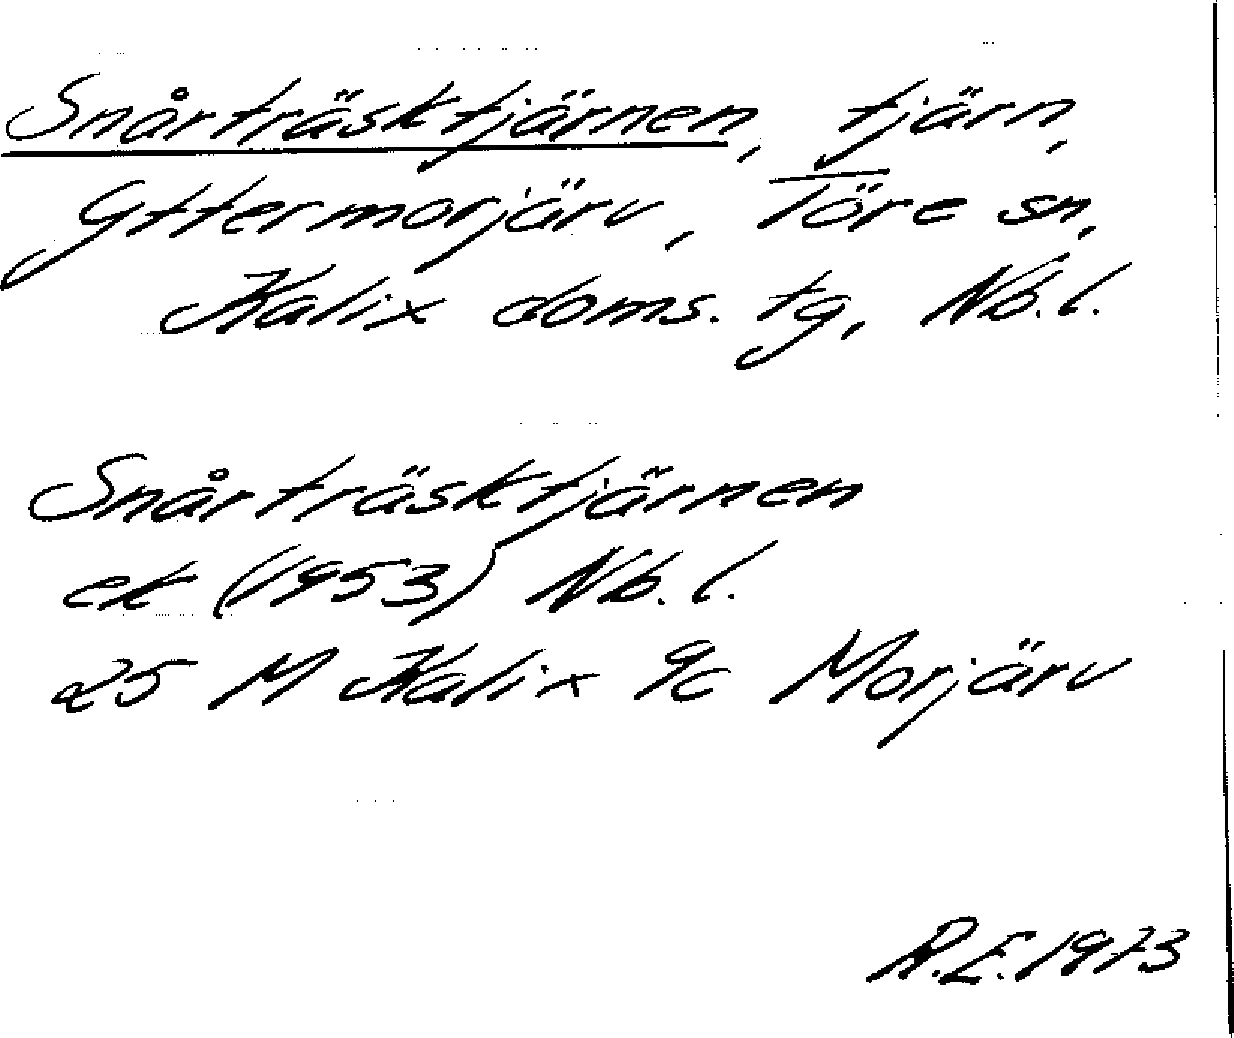 Snårträsktjärnen, tjärn,
Yttermorjärv, Töre sn,
Kalix doms. tg, Nb. l.
Snårträsktjärnen
ek (1953) Nb. l.
25 M Kalix 9c Morjärv
R.E. 1973